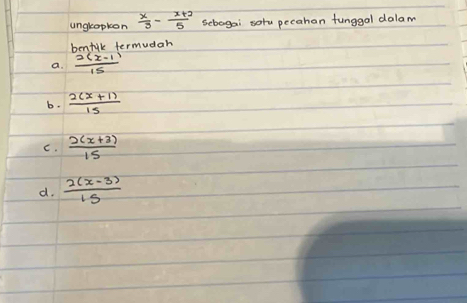 ungkapkan x/3 - x+2/5 sebagai satu pecahan tunggal dalam
bentuk termudah
a. 2(x-1)/15
b. 2(x+1)/15
c. 2(x+3)/15
d. 2(x-3)/15